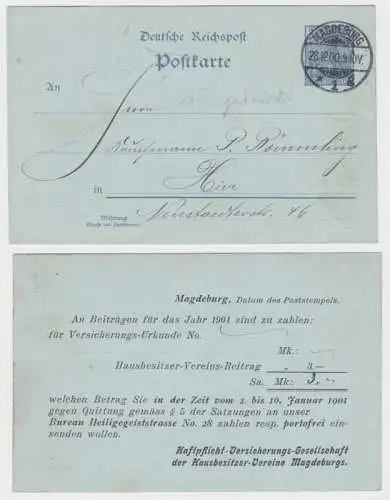 Deutsche Reichspost
Postkarte
MAGDEBURG
28.12.00.
* 1
An
Herrn
Kaufmann P.
Hier
in
Neustädterstr. 46
Wohnung
Magdeburg, Datum des Poststempels.
An Beiträgen für das Jahr 1901 sind zu zahlen:
für Versicherungs-Urkunde No.
Mk.:
Hausbesitzer-Vereins-Beitrag „ 3.—
Sa. Mk: 3.—
welchen Betrag Sie in der Zeit vom 2. bis 10. Januar 1901
gegen Quittung gemäss § 5 der Satzungen an unser
Bureau Heiligegeiststrasse No. 28 zahlen resp. portofrei ein-
senden wollen.
Haftpflicht-Versicherungs-Gesellschaft
der Hausbesitzer-Vereine Magdeburgs.